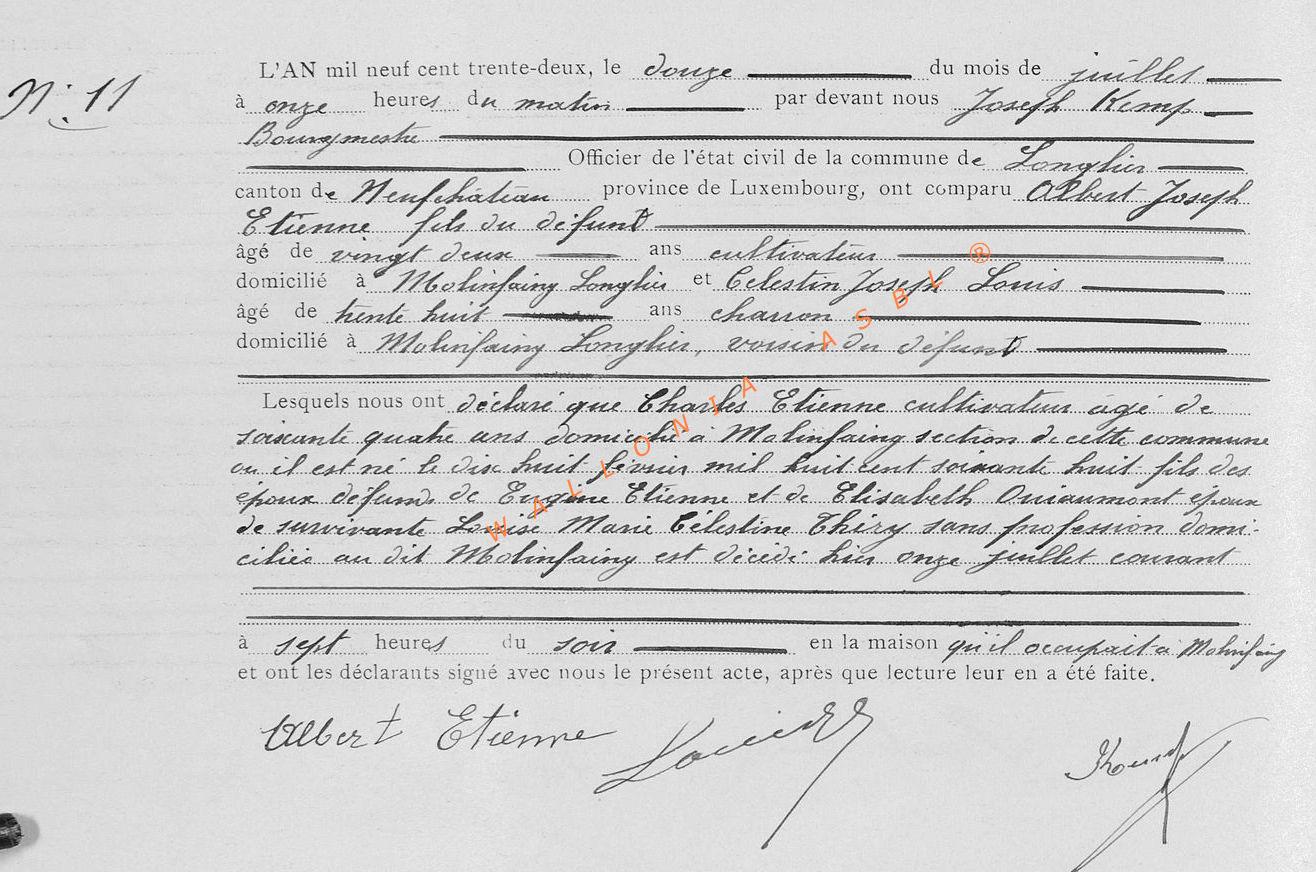 N° 11
L'AN mil neuf cent trente-deux, le douze du mois de juillet
à onze heures du matin par devant nous Joseph Kemp
Bourgmestre
Officier de l'état civil de la commune de Longlier
canton de Neufchâteau province de Luxembourg, ont comparu Albert Joseph
Etienne fils du défunt
âgé de vingt deux ans cultivateur
domicilié à Molinfaing Longlier et Célestin Joseph Louis
âgé de trente huit ans charron
domicilié à Molinfaing Longlier, voisin du défunt
Lesquels nous ont déclaré que Charles Etienne cultivateur âgé de
soixante quatre ans domicilié à Molinfaing section de cette commune
ou il est né le dix huit février mil huit cent soixante huit fils des
époux défunts de Eugène Etienne et de Elisabeth époux
de survivante Louise Marie Célestine Thiry sans profession domi-
ciliée au dit Molinfaing est décédé hier onze juillet courant
à sept heures du soir en la maison qu'il occupait à Molinfaing
et ont les déclarants signé avec nous le présent acte, après que lecture leur en a été faite.
Albert Etienne
WALLONIA ASBL ®